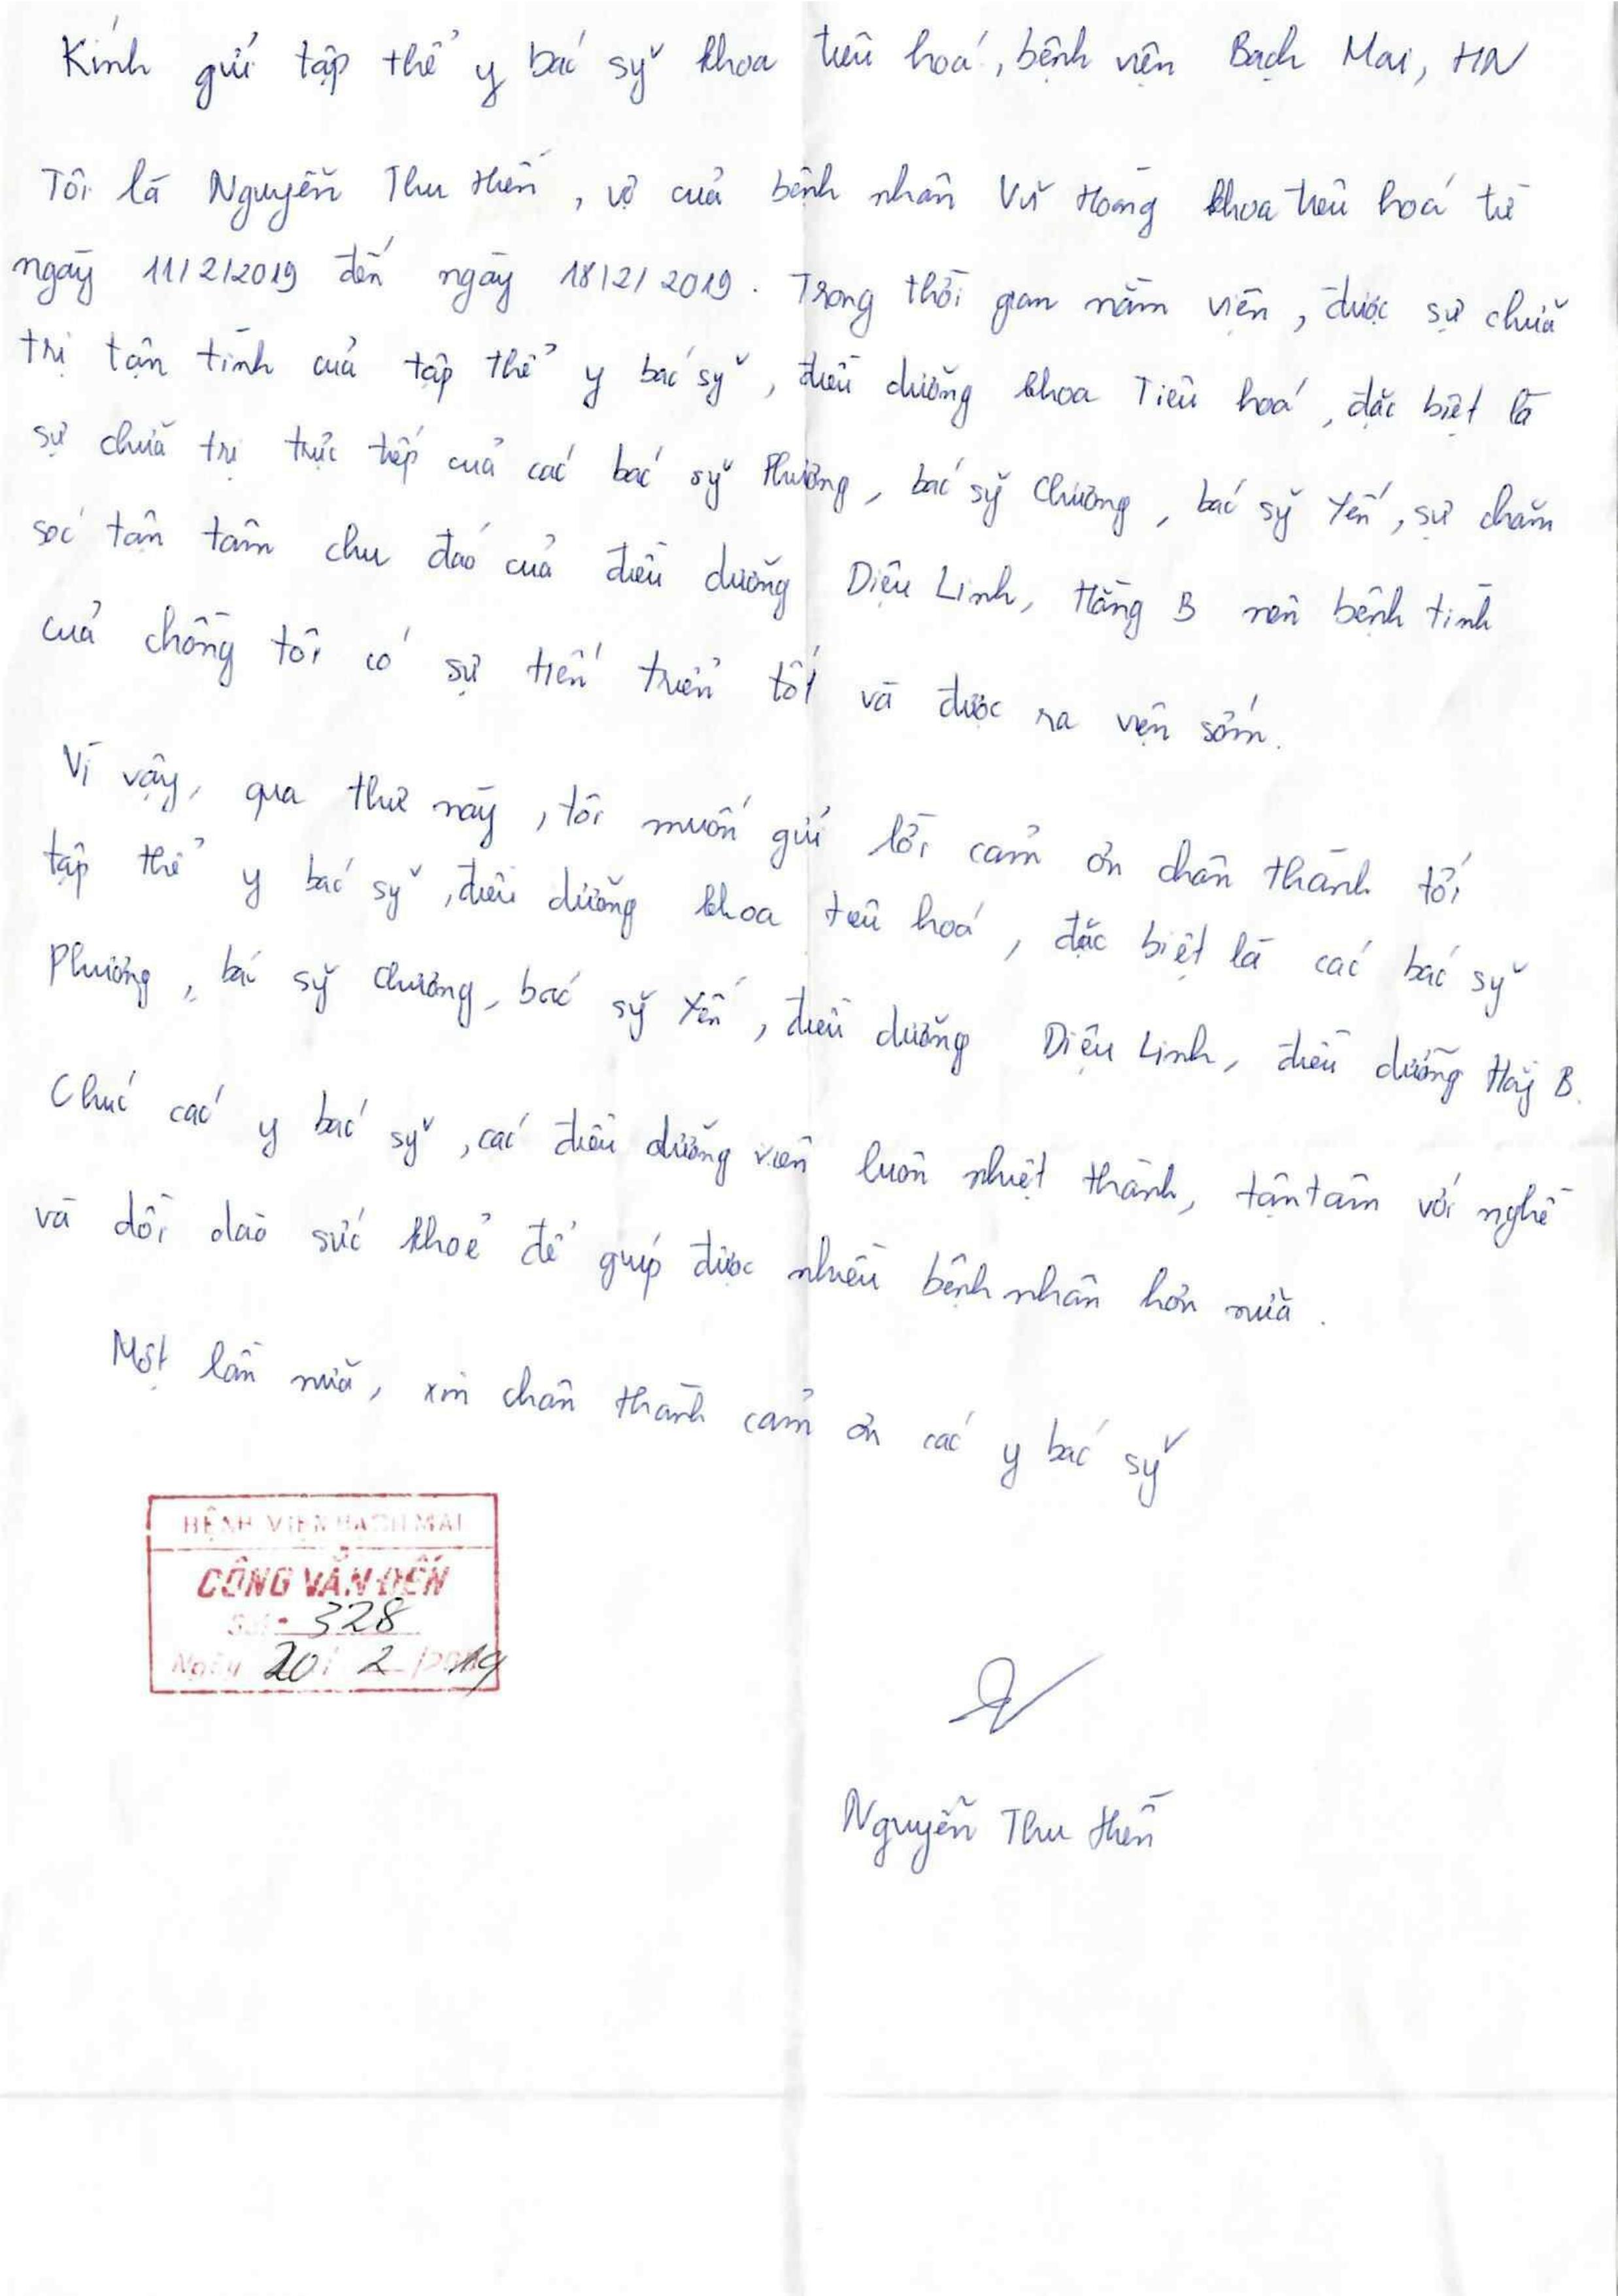 Kính gửi tập thể y bác sỹ khoa tiêu hoá, bệnh viện Bạch Mai, HN
Tôi là Nguyễn Thu Hiền, vợ của bệnh nhân Vũ Hoàng khoa tiêu hoá từ
ngày 11/2/2019 đến ngày 18/2/2019. Trong thời gian nằm viện, được sự chữa
trị tận tình của tập thể y bác sỹ, điều dưỡng khoa Tiêu hoá, đặc biệt là
sự chữa trị trực tiếp của các bác sỹ Phương, bác sỹ Chương, bác sỹ Yến, sự chăm
sóc tận tâm chu đáo của điều dưỡng Diệu Linh, Hằng B nên bệnh tình
của chồng tôi có sự tiến triển tốt và được ra viện sớm.
Vì vậy, qua thư này, tôi muốn gửi lời cảm ơn chân thành tới
tập thể y bác sỹ, điều dưỡng khoa tiêu hoá, đặc biệt là các bác sỹ
Phương, bác sỹ Chương, bác sỹ Yến, điều dưỡng Diệu Linh, điều dưỡng B.
Chúc các y bác sỹ, các điều dưỡng viên luôn nhiệt thành, tận tâm với nghề
và dồi dào sức khoẻ để giúp được nhiều bệnh nhân hơn nữa.
Một lần nữa, xin chân thành cảm ơn các y bác sỹ
BỆNH VIỆN BẠCH MAI
CÔNG VĂN ĐẾN
Số: 328
Ngày 20/2/2019
Nguyễn Thu Hiền